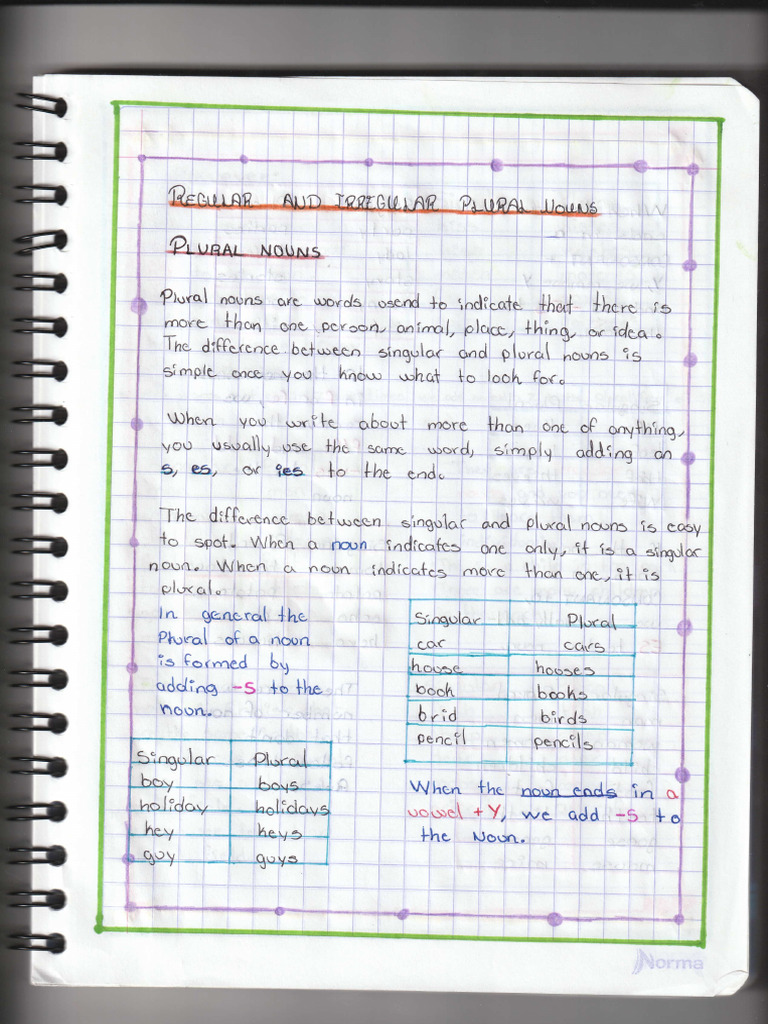 REGULAR AND IRREGULAR PLURAL NOUNS
PLURAL NOUNS
Plural nouns are words usend to indicate that there is
more than one person, animal, place, thing, or idea.
The difference between singular and plural nouns is
simple once you know what to look for.
When you write about more than one of anything,
you usually use the same word, simply adding an
s, es, or ies to the end.
The difference between singular and plural nouns is easy
to spot. When a noun indicates one only, it is a singular
noun. When a noun indicates more than one, it is
plural.
In general the
Plural of a noun
is formed by
adding -S to the
noun.
Singular Plural
car cars
house houses
book books
brid birds
pencil pencils
Singular Plural
boy boys
holiday holidays
key keys
guy guys
When the noun ends in a
vowel + Y, we add -S to
the Noun.
Norma